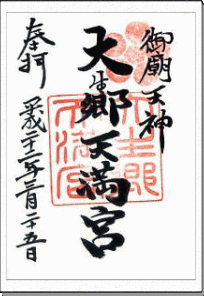 御廟天神
大生郷天満宮
奉拝
平成二十二年二月二十五日